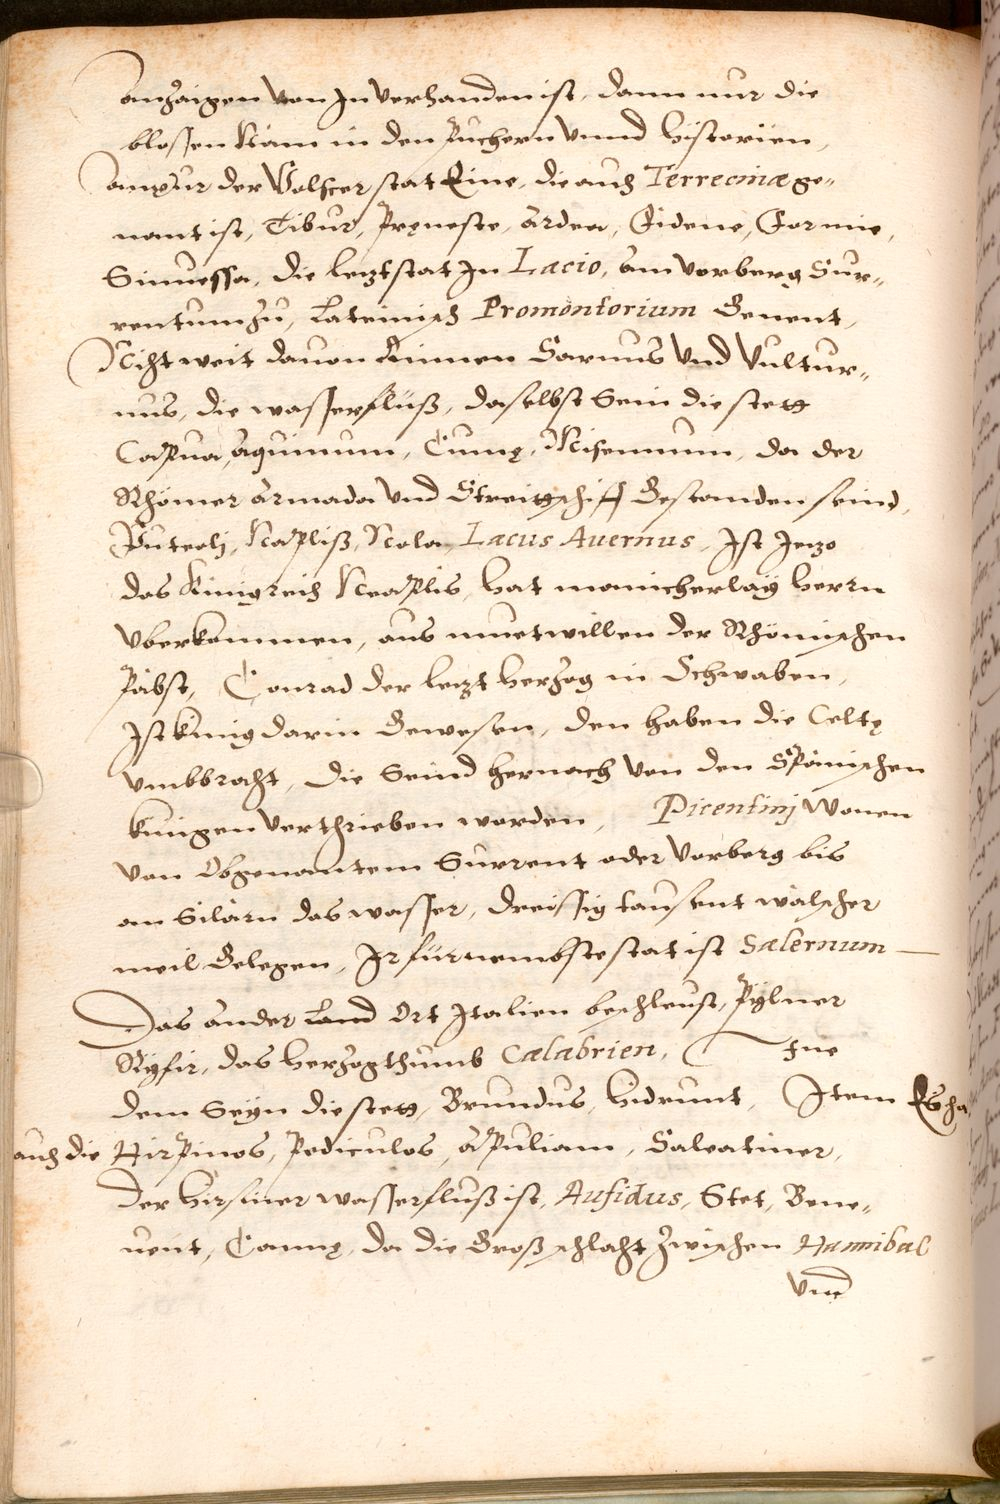 anzaigen von In verhanden ist, dann nur die
blossen Nam in den Puchern vnnd historien,
anxur der Volscer stat Eine, die auch Terrecinæ ge-
nant ist, Tibur, Preneste, ardea, Fidene, Formie,
Sinuessa, die letzt stat In Lacio, am vorberg Sur-
rentum zu, Lateinisch Promontorium Genent,
Nicht weit dauon Rinnen Sarnus vnd Vultur-
nus, die wasserflüß, daselbst Sein die stett
Capua, aquinum, Cumę, Misenum, da der
Rhömer armada vnd Streittschiff Gestanden seind,
Puteolj, Napliß, Nola, Lacus Auernus, Ist Jetzo
das Künigreich Neaplis, hat manicherlaÿ herrn
vberkommen, aus muetwillen der Rhömischen
Päbst, Conrad der letzt herzog in Schwaben,
Ist kunig darin Gewesen, den haben die Celtę
vmbbracht, die Seind hernach von den Spänischen
kunigen verthrieben worden, Picentinj wonen
von Obgenantem Surrent oder vorberg bis
an Silärn das wasser, dreissig tausent wälscher
meil Gelegen, Ir fürnembste stat ist Salernum
Das ander Land Ort Italien beschleust,
das herzogthumb Calabrien,
dem Seyn die stett, Brundus, hidrunt, Item
auch die Hirpinos, Pediculos, aPuliam, Salentiner,
der wasserfluß ist, Aufidus, Stet, Bene-
uent, Cannę, da die Groß schlacht zwischen Hannibal
vnd